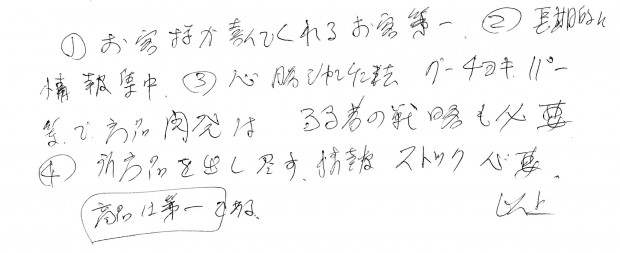 ① お客様が喜んでくれるお客第一. ② 長期的に
情報集中. ③ 必勝 グーチョキパー
等で商品開発は 弱者の戦略も必要
④ 新商品を出し尽す. 情報ストック必要.
商品は第一である. 以上